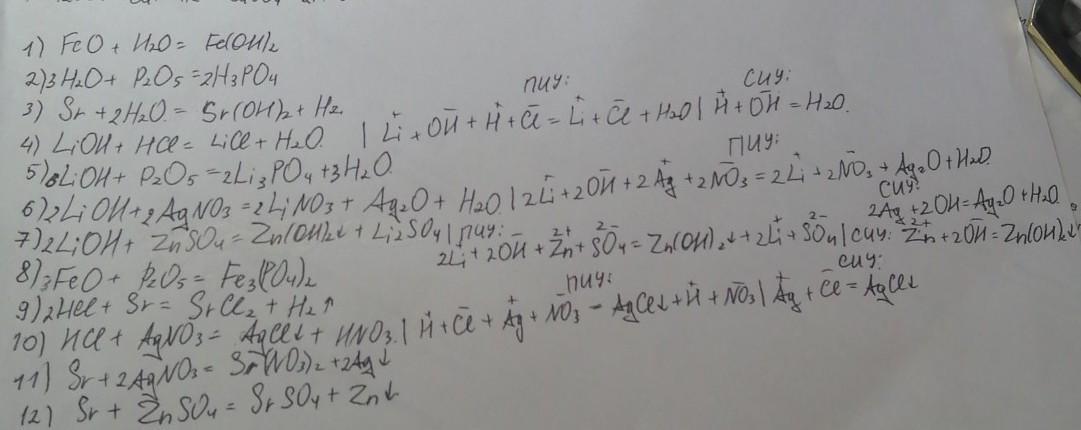 1) FeO + H2O = Fe(OH)2
2) 3H2O + P2O5 = 2H3PO4
3) Sr + 2H2O = Sr(OH)2 + H2
4) LiOH + HCl = LiCl + H2O | ПИУ: Li⁺ + OH⁻ + H⁺ + Cl⁻ = Li⁺ + Cl⁻ + H2O | СИУ: H⁺ + OH⁻ = H2O
5) 6LiOH + P2O5 = 2Li3PO4 + 3H2O
6) 2LiOH + 2AgNO3 = 2LiNO3 + Ag2O + H2O | ПИУ: 2Li⁺ + 2OH⁻ + 2Ag⁺ + 2NO3⁻ = 2Li⁺ + 2NO3⁻ + Ag2O + H2O
СИУ: 2Ag⁺ + 2OH = Ag2O + H2O
7) 2LiOH + ZnSO4 = Zn(OH)2↓ + Li2SO4 | ПИУ: 2Li⁺ + 2OH⁻ + Zn²⁺ + SO4²⁻ = Zn(OH)2↓ + 2Li⁺ + SO4²⁻ | СИУ: Zn²⁺ + 2OH⁻ = Zn(OH)2↓
8) 3FeO + P2O5 = Fe3(PO4)2
9) 2HCl + Sr = SrCl2 + H2↑
10) HCl + AgNO3 = AgCl↓ + HNO3. | ПИУ: H⁺ + Cl⁻ + Ag⁺ + NO3⁻ = AgCl↓ + H⁺ + NO3⁻ | СИУ: Ag⁺ + Cl⁻ = AgCl↓
11) Sr + 2AgNO3 = Sr(NO3)2 + 2Ag↓
12) Sr + ZnSO4 = SrSO4 + Zn↓